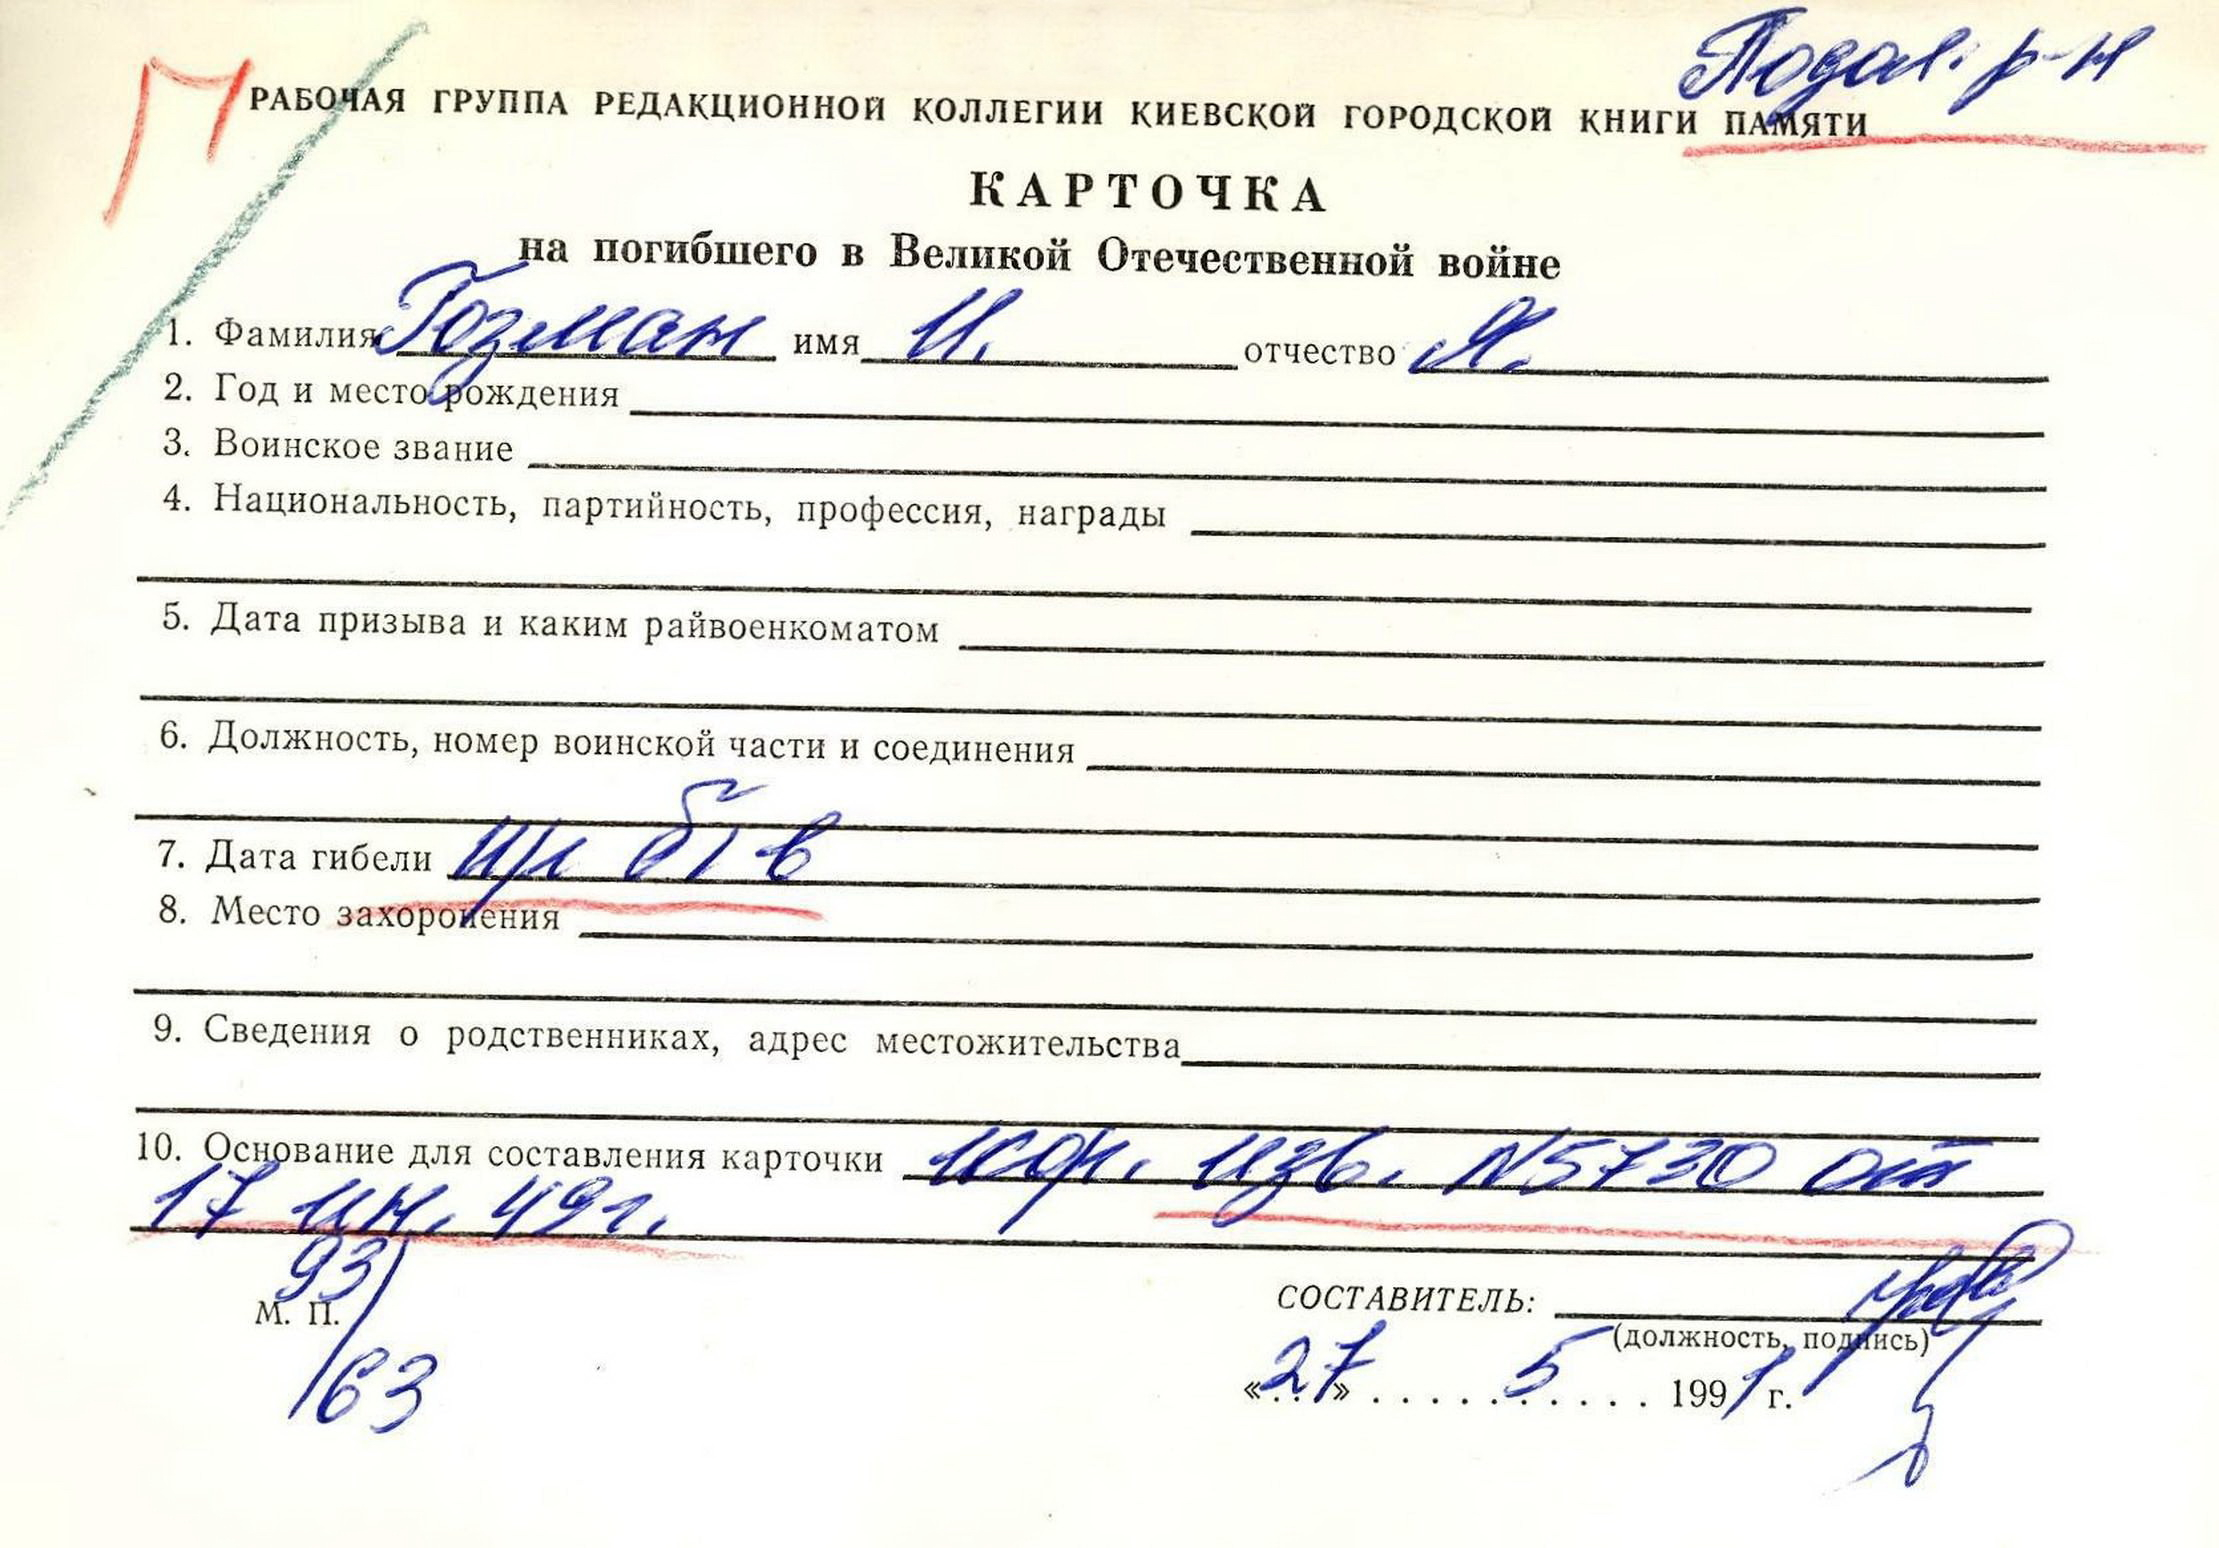 П
Подол. р-н
РАБОЧАЯ ГРУППА РЕДАКЦИОННОЙ КОЛЛЕГИИ КИЕВСКОЙ ГОРОДСКОЙ КНИГИ ПАМЯТИ
КАРТОЧКА
на погибшего в Великой Отечественной войне
1. Фамилия Гозман имя И. отчество Я.
2. Год и место рождения
3. Воинское звание
4. Национальность, партийность, профессия, награды
5. Дата призыва и каким райвоенкоматом
6. Должность, номер воинской части и соединения
7. Дата гибели пр б/в
8. Место захоронения
9. Сведения о родственниках, адрес местожительства
10. Основание для составления карточки кор. изв. N5730 от
17 ин. 49г.
93/63
М. П.
СОСТАВИТЕЛЬ:
(должность, подпись)
«27» 5 1991 г.